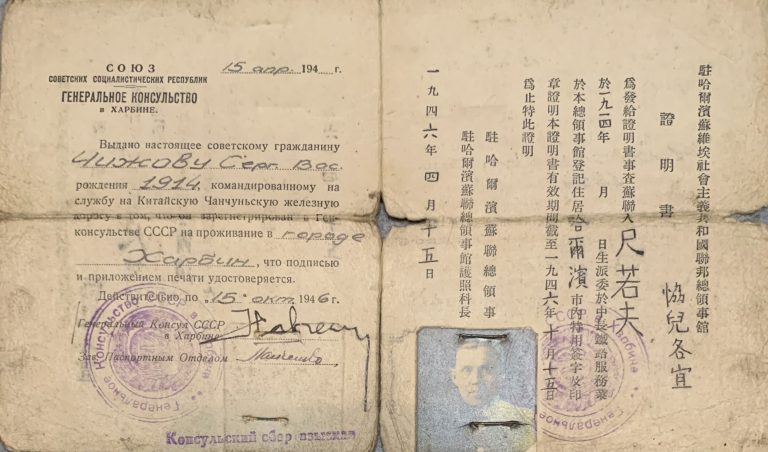 СОЮЗ
СОВЕТСКИХ СОЦИАЛИСТИЧЕСКИХ РЕСПУБЛИК
ГЕНЕРАЛЬНОЕ КОНСУЛЬСТВО
в ХАРБИНЕ.
15 апр. 194 г.
Выдано настоящее советскому гражданину
Чижову Серг. Вас.
рождения 1914. командированному на
службу на Китайскую Чанчуньскую железную
дорогу в том, что он зарегистрирован в Ген-
консульстве СССР на проживание в городе
Харбин, что подписью
и приложением печати удостоверяется.
Действительно по „15„ окт. 1946 г.
Генеральный Консул СССР
в Харбине:
Зав. Паспортным Отделом
Генеральное Консульство
Консульский сбор взыскан
駐哈爾濱蘇維埃社會主義共和國聯邦總領事館
證明書
為發給證明書事查蘇聯人尺若夫 兒各宜
於一九一四年 月 日生派委於中長鐵路服務業
於本總領事館登記住居哈爾濱市內特用簽字及印
章證明本證明書有效期間截至一九四六年十月十五日
為止特此證明
駐哈爾濱蘇聯總領事
駐哈爾濱蘇聯總領事館護照科長
一九四六年四月十五日